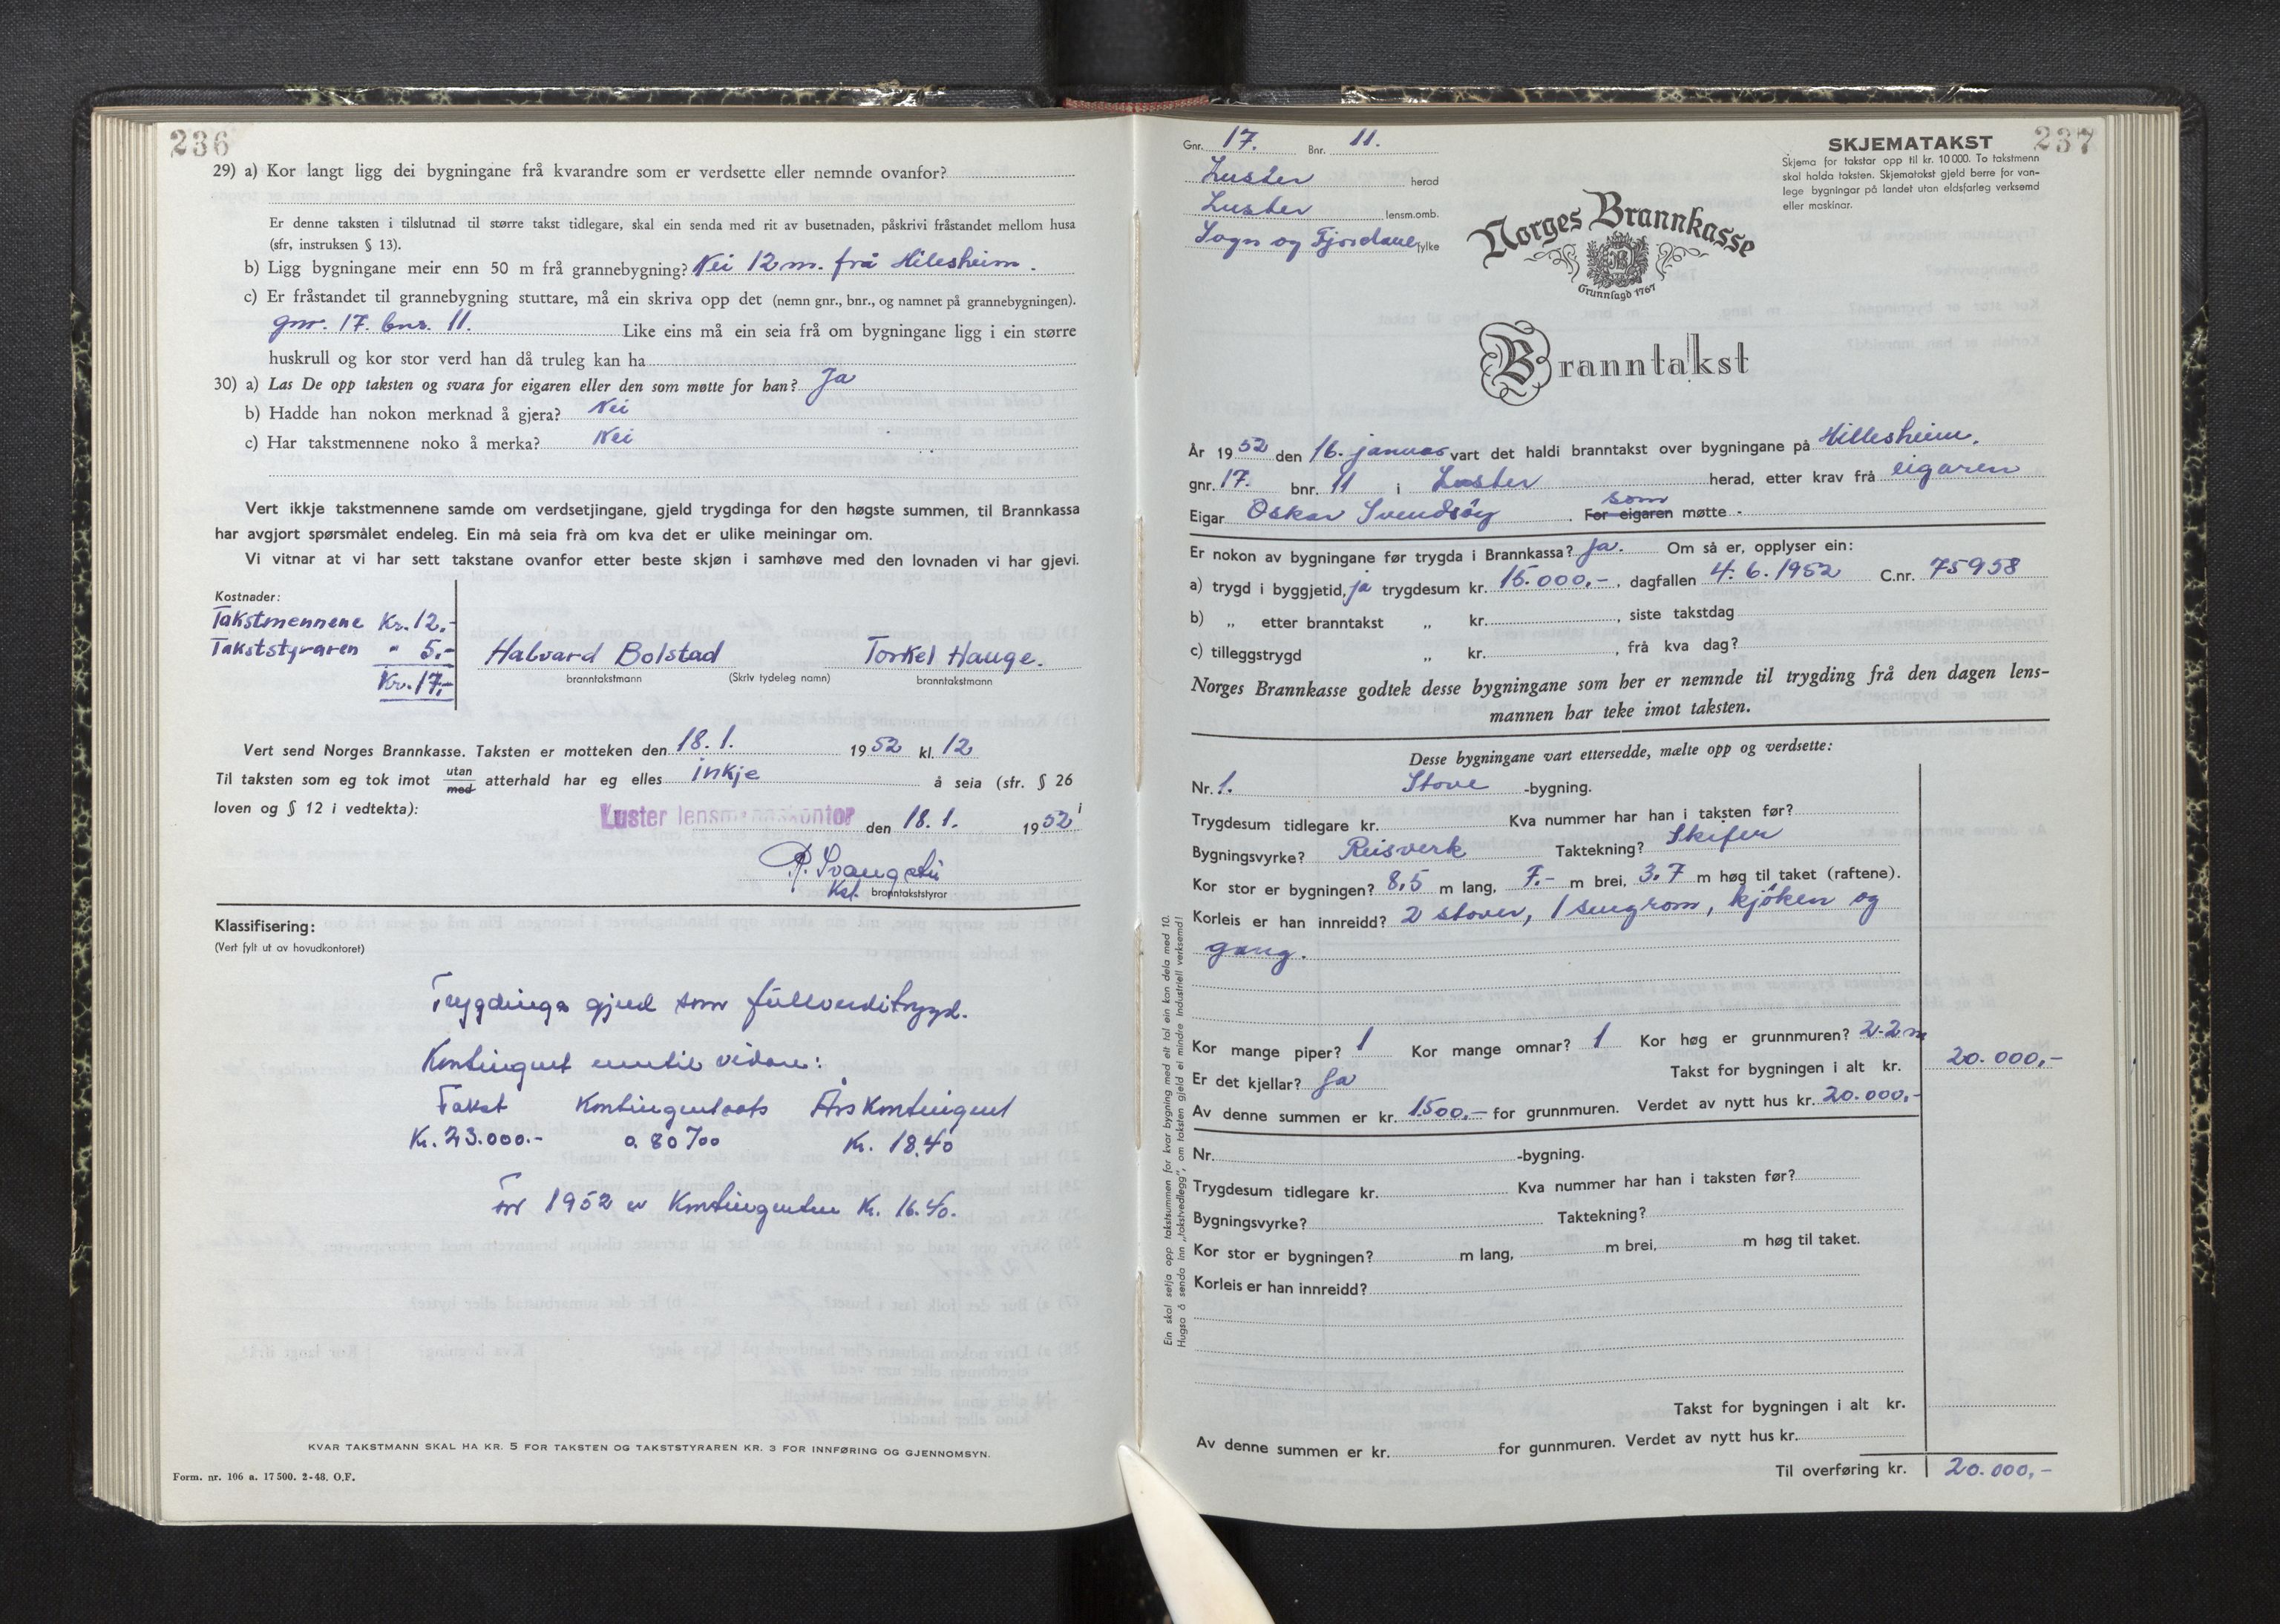 236
29) a) Kor langt ligg dei bygningane frå kvarandre som er verdsette eller nemnde ovanfor?
Er denne taksten i tilslutnad til større takst tidlegare, skal ein senda med rit av busetnaden, påskrivi fråstandet mellom husa
(sfr, instruksen § 13).
b) Ligg bygningane meir enn 50 m frå grannebygning? Nei 12 m. frå Hilesheim.
c) Er fråstandet til grannebygning stuttare, må ein skriva opp det (nemn gnr., bnr., og namnet på grannebygningen).
gnr. 17. bnr. 11. Like eins må ein seia frå om bygningane ligg i ein større
huskrull og kor stor verd han då truleg kan ha
30) a) Las De opp taksten og svara for eigaren eller den som møtte for han? Ja
b) Hadde han nokon merknad å gjera? Nei
c) Har takstmennene noko å merka? Nei
Vert ikkje takstmennene samde om verdsetjingane, gjeld trygdinga for den høgste summen, til Brannkassa
har avgjort spørsmålet endeleg. Ein må seia frå om kva det er ulike meiningar om.
Vi vitnar at vi har sett takstane ovanfor etter beste skjøn i samhøve med den lovnaden vi har gjevi.
Kostnader:
Takstmennene Kr. 12,-
Takststyraren " 5,-
Kr. 17,-
Halvard Bolstad Torkel Hauge.
branntakstmann (Skriv tydeleg namn) branntakstmann
Vert send Norges Brannkasse. Taksten er motteken den 18. 1. 1952 kl. 12
Til taksten som eg tok imot utan/med atterhald har eg elles inkje å seia (sfr. § 26
loven og § 12 i vedtekta):
Luster lensmannskontor den 18. 1. 1952
Kst. branntakststyrar
Klassifisering:
(Vert fylt ut av hovudkontoret)
Trygdinga gjeld som fullverditrygd.
Kontingent inntil vidare:
Takst Kontingentsats Årskontingent
Kr. 23.000.- 0.80 ‰ Kr. 18.40
For 1952 er Kontingenten Kr. 16.40.
KVAR TAKSTMANN SKAL HA KR. 5 FOR TAKSTEN OG TAKSTSTYRAREN KR. 3 FOR INNFØRING OG GJENNOMSYN.
Form. nr. 106 a. 17 500. 2-48. O.F.
237
Gnr. 17. Bnr. 11.
Luster herad
Luster lensm.omb.
Sogn og Fjordane fylke
SKJEMATAKST
Skjema for takstar opp til kr. 10 000. To takstmenn
skal halda taksten. Skjematakst gjeld berre for van-
lege bygningar på landet utan eldsfarleg verksemd
eller maskinar.
Norges Brannkasse
Grunnlagd 1767
Branntakst
År 1952 den 16. januar vart det haldi branntakst over bygningane på Hillesheim.
gnr. 17. bnr. 11 i Luster herad, etter krav frå eigaren
Eigar Oskar Svendsøy. For eigaren som møtte -
Er nokon av bygningane før trygda i Brannkassa? Ja. Om så er, opplyser ein:
a) trygd i byggjetid, ja trygdesum kr. 15.000,-, dagfallen 4. 6. 1952 C.nr. 75958
b) „ etter branntakst „ kr. , siste takstdag
c) tilleggstrygd „ kr. , frå kva dag?
Norges Brannkasse godtek desse bygningane som her er nemnde til trygding frå den dagen lens-
mannen har teke imot taksten.
Desse bygningane vart ettersedde, mælte opp og verdsette:
Nr. 1. Stove -bygning.
Trygdesum tidlegare kr. Kva nummer har han i taksten før?
Bygningsvyrke? Reisverk Taktekning? Skifer
Kor stor er bygningen? 8,5 m lang, 7,- m brei, 3.7 m høg til taket (raftene).
Korleis er han innreidd? 2 stover, 1 sengrom, kjøken og
gang.
Kor mange piper? 1 Kor mange omnar? 1 Kor høg er grunnmuren? 2.2 m
Er det kjellar? Ja Takst for bygningen i alt kr. 20.000,-
Av denne summen er kr. 1500,- for grunnmuren. Verdet av nytt hus kr. 20.000,-
Nr. -bygning.
Trygdesum tidlegare kr. Kva nummer har han i taksten før?
Bygningsvyrke? Taktekning?
Kor stor er bygningen? m lang, m brei, m høg til taket.
Korleis er han innreidd?
Takst for bygningen i alt kr.
Av denne summen er kr. for gunnmuren. Verdet av nytt hus kr.
Til overføring kr. 20.000,-
Ein skal setja opp takstsummen for kvar bygning med eit tal ein kan dela med 10.
Hugsa å senda inn „takstvedlegg", om taksten gjeld ei mindre industriell verksemd!